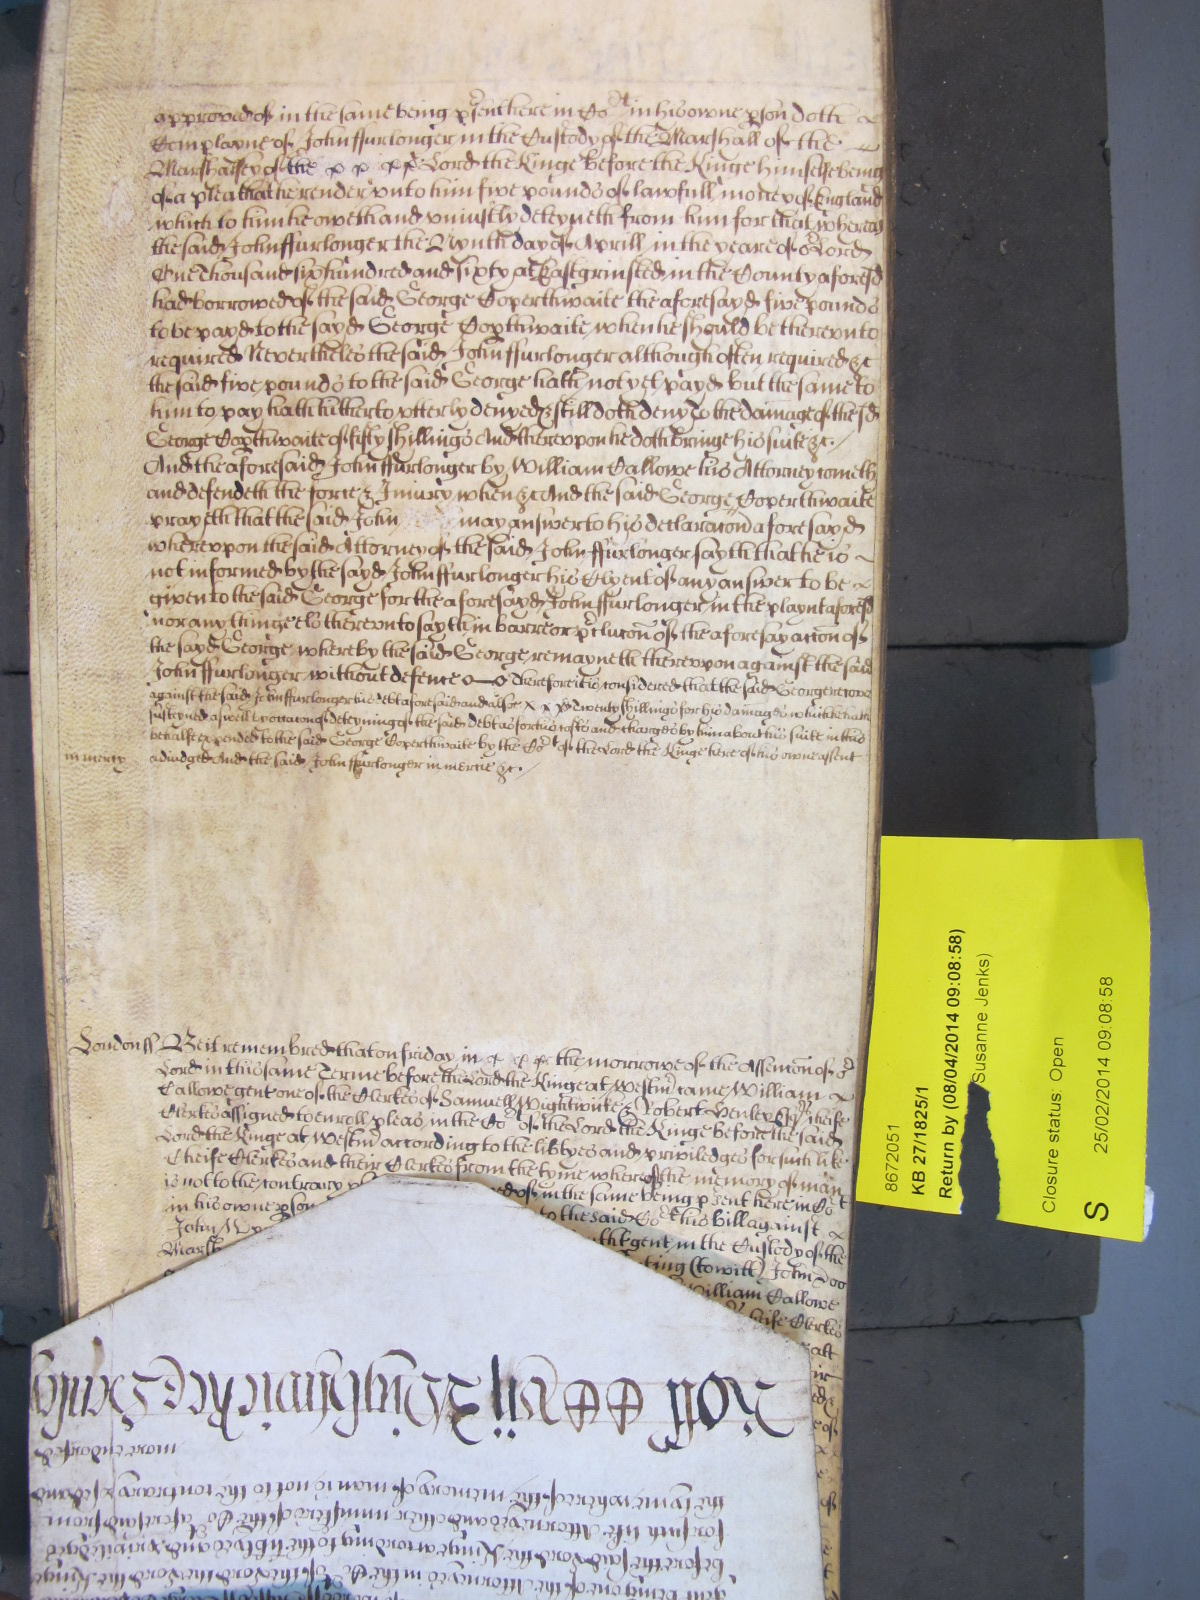 approved of in the same being p̃sent here in Cot in his owne pson doth
Complayne of John ffurlonger in the Custody of the Marshall of the
Marshalsey of the Lord the Kinge before the Kinge himselfe being
of a plea that he render vnto him five pounds of lawfull money of England
which to him he oweth and vniustly deteyneth from him for that whereas
the said John ffurlonger the Nynth day of Aprill in the yeare of or Lord
One Thousand six hundred and sixty at Eastgrinsted in the County aforesd
had borrowed of the said George Coperthwaite the aforesayd five pounds
to be payd to the sayd George Copthwaite when he should be therevnto
required Neverthelesthe said John ffurlonger although often required &c
the said five pounds to the said George hath not yet payd but the same to
him to pay hath hitherto vtterly denyed & still doth deny To the damage of the sd
George Copthwaite of fifty shillings And therevpon he doth bringe his suite &c.
And the aforesaid John ffurlonger by William Callowe his Attorney cometh
and defendeth the force & Iniury when &c And the said George Coperthwaite
prayeth that the said John may answer to his declaracon aforesayd
wherevpon the said Attorney of the said John ffurlonger sayth that he is
not informed by the sayd John ffurlonger his Clyent of any answer to be
given to the said George for the aforesayd John ffurlonger in the playnt aforesd
nor any thinge els therevnto sayth in barre or p̃clucon of the aforesay accon of
the sayd George whereby the said George remayneth therevpon against the said
John ffurlonger without defence Therefore it is considered that the said George recover
against the said John ffurlonger his debt aforesaid and alsoe Twenty shillings for his damages which he hath
susteyned aswell by occacon of deteyning of the said debt as for his costs and charges by him about his suite in this
behalfe expended to the said George Coperthwaite by the Cot of the Lord the Kinge here of his owne assent
in mercy adiudged And the said John ffurlonger in mercie &c.
London ss Be it remembred that on friday in the morrowe of the Assencon of or
Lord in this same Terme before the Lord the Kinge at Westm̃ came William
Callowe gent one of the Clerkes of Samuell Wightwicke & Robert Henley Esqrs cheife
Clerkes assigned to enroll pleas in the Cot of the Lord the Kinge before the said
Lord the Kinge at Westm̃ according to the libtyes and priviledges for such like
Cheife Clerkes and their Clerkes from the tyme whereof the memory of man
is not to the contrary ed of in the same being p̃sent here in Cot
in his owne pson to the said Cot his bill against
John gent in the Custody of the
Marsh ting (to witt) John Doo
William Callowe
heife Clerkes
8672051
KB 27/1825/1
Return by (08/04/2014 09:08:58)
Susanne Jenks)
Closure status: Open
S
25/02/2014 09:08:58
Roll
more endorsed
the tyme whereof the memory of man is not to the contrary
for such like Attorneyes and other ministers of the Cot aforesayd from
before the said Lord the Kinge according to the libtyes and priviledges
gent being one of the Attorneyes in the Cot of the Lord the Kinge